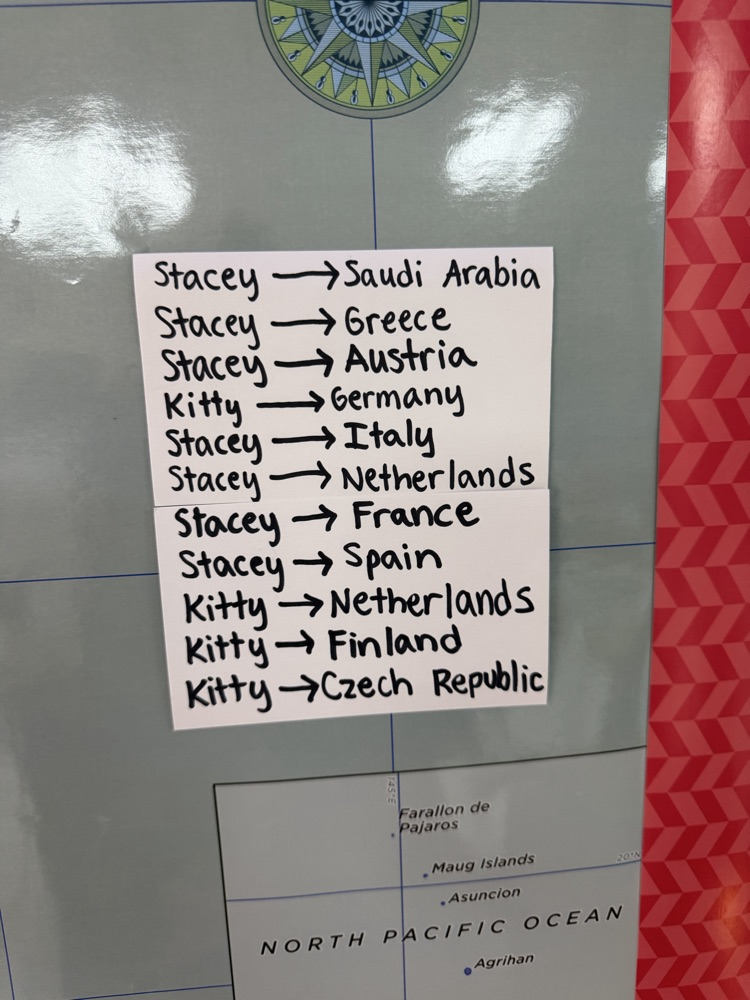 Stacey → Saudi Arabia
Stacey → Greece
Stacey → Austria
Kitty → Germany
Stacey → Italy
Stacey → Netherlands
Stacey → France
Stacey → Spain
Kitty → Netherlands
Kitty → Finland
Kitty → Czech Republic
145°E
Farallon de
Pajaros
Maug Islands
20°N
Asuncion
NORTH PACIFIC OCEAN
Agrihan